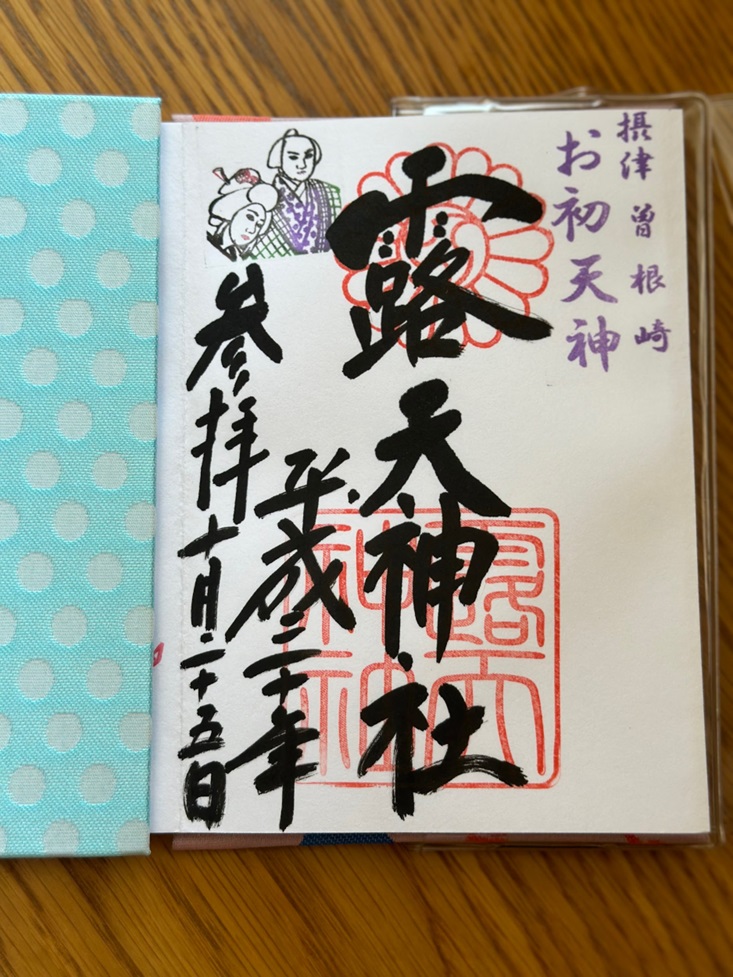 摂津 曽根崎
お初天神
露天神社
平成三十年
参拝十月二十五日